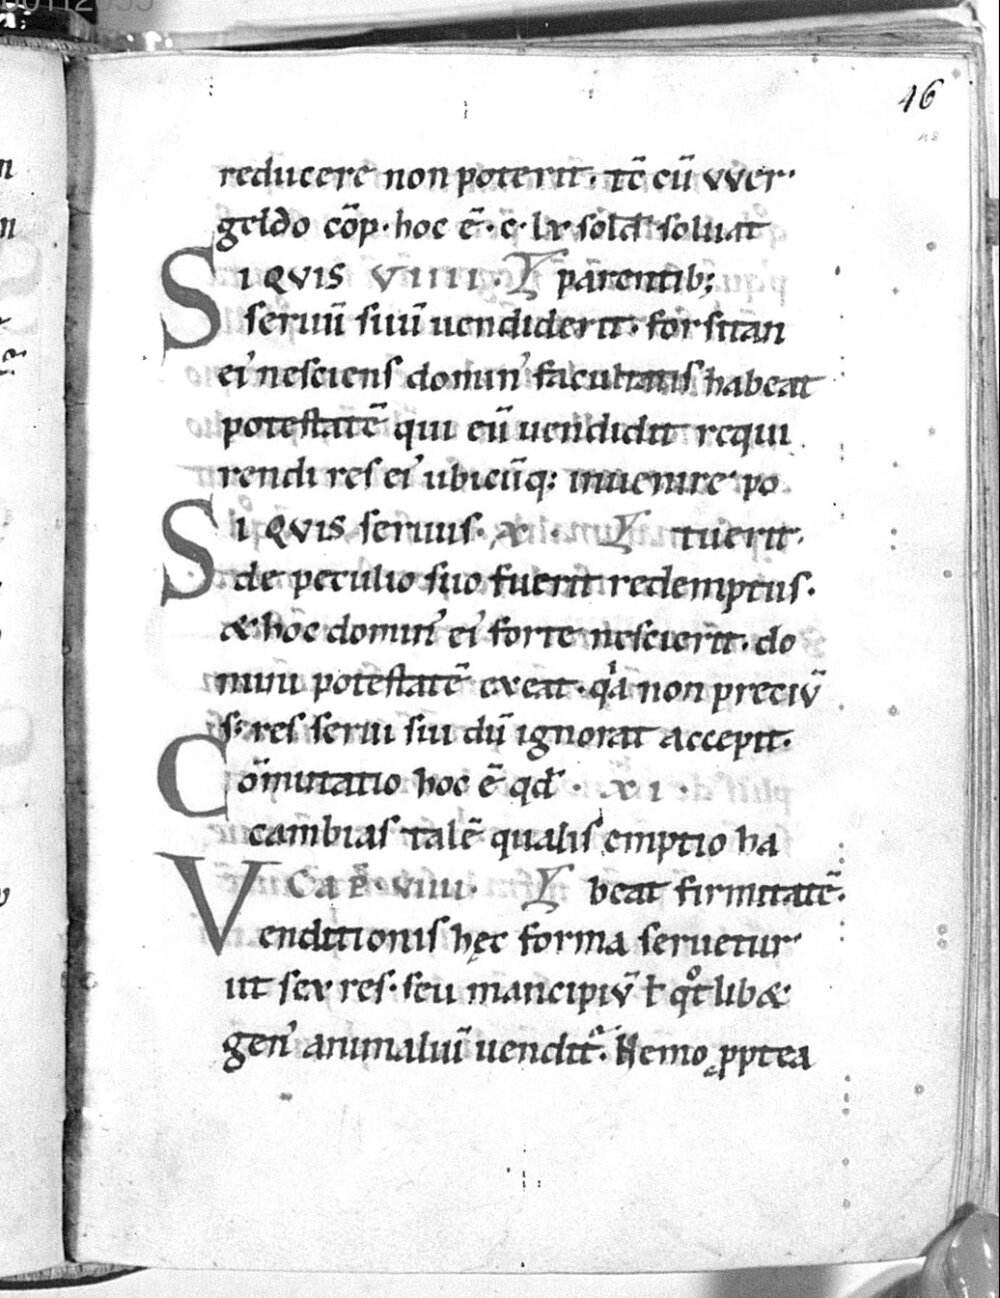 46
reducere non poterit. tc̄ cū vver·
geldo cōp·hoc ē·c·lx sold soluat
SI QVIS VIIII· parentib;
seruū suū uendiderit· forsitan
ei' nesciens domin' facultatis habeat
potestatē qui eū uendidit requi
rendi res ei' ubicūq: inuenire po
SI QVIS seruus· x· tuerit·
de peculio suo fuerit redemptus.
& hoc domin' ei' forte nescierit· do
mini potestatē exeat· qa non preciū
s; res serui sui dū ignorat accepit.
Cōmutatio hoc ē qd· xi·
cambias talē qualis emptio ha
CaP· viiii· beat firmitatē.
Venditionis hęc forma seruetur·
ut sex res· seu mancipiū ł qotlib&
gen' animaliū uendit· Nemo ꝓptea